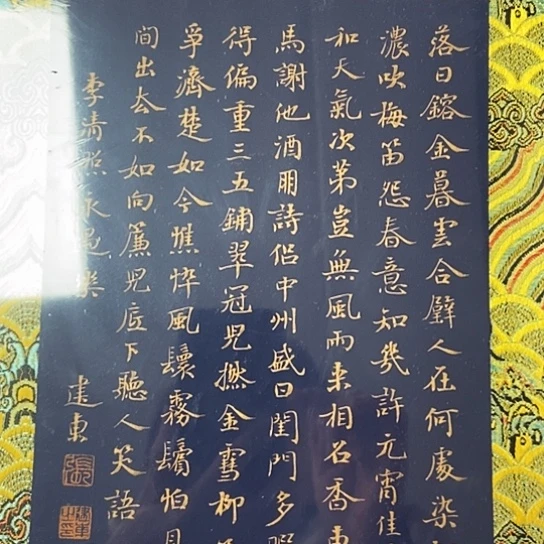 落日鎔金暮雲合璧人在何處染
濃吹梅笛怨春意知幾許元宵佳
和天氣次第豈無風雨来相召香車
馬謝他酒朋詩侶中州盛日閨門多暇
得偏重三五鋪翠冠兒撚金雪柳
爭濟楚如今憔悴風鬟霧鬢怕見
間出去不如向簾兒底下聽人笑語
李清照永遇樂
建東